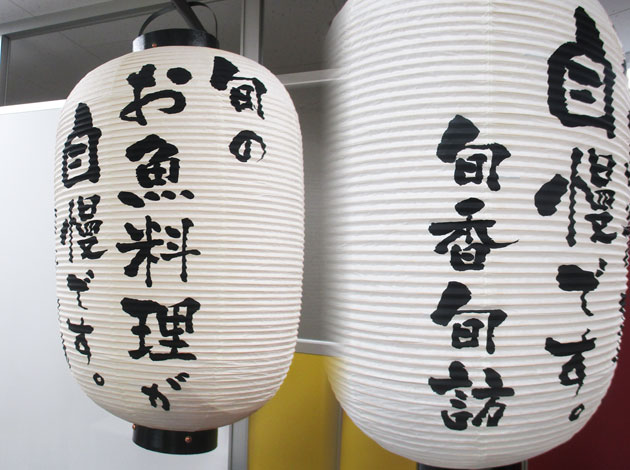 旬の
お魚料理が
自慢です。
自慢です。
旬香旬訪